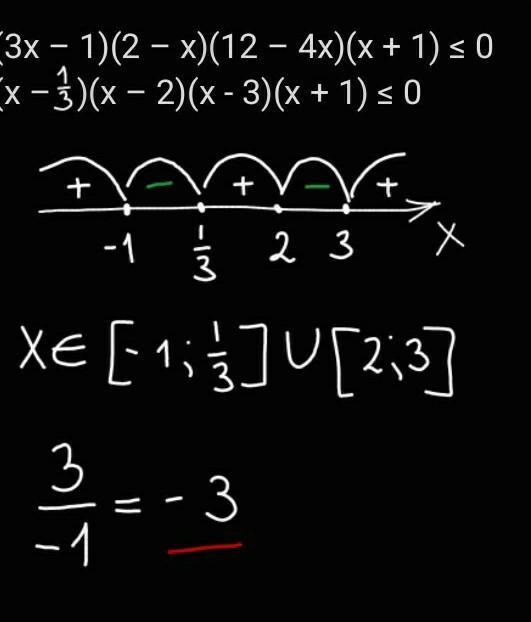 (3x − 1)(2 − x)(12 − 4x)(x + 1) ≤ 0
(x − 1/3)(x − 2)(x - 3)(x + 1) ≤ 0
+ − + − +
-1 1/3 2 3 X
X∈ [-1; 1/3] ∪ [2;3]
3/-1 = - 3